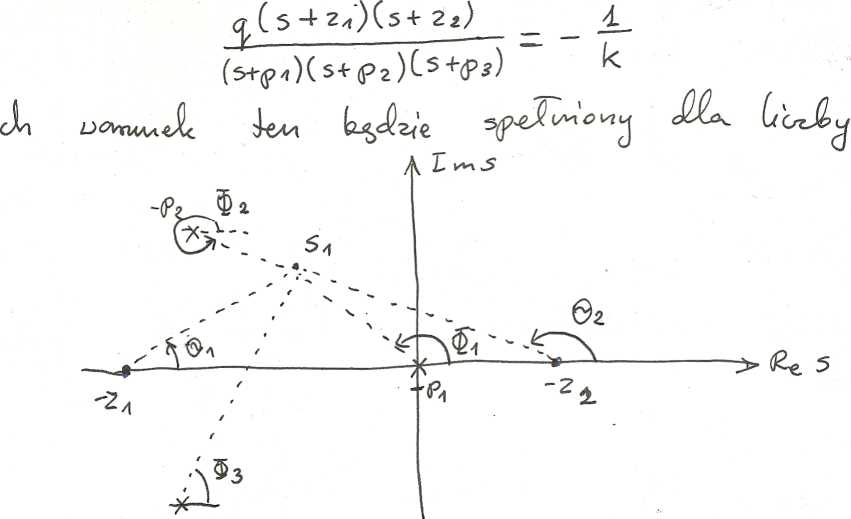 q(s+z1)(s+z2) / (s+p1)(s+p2)(s+p3) = - 1/k
ch warunek ten będzie spełniony dla liczby
Im s
-p2 Φ2
s1
Θ2
Θ1 Φ1
Re s
-z1 -p1 -z2
Φ3